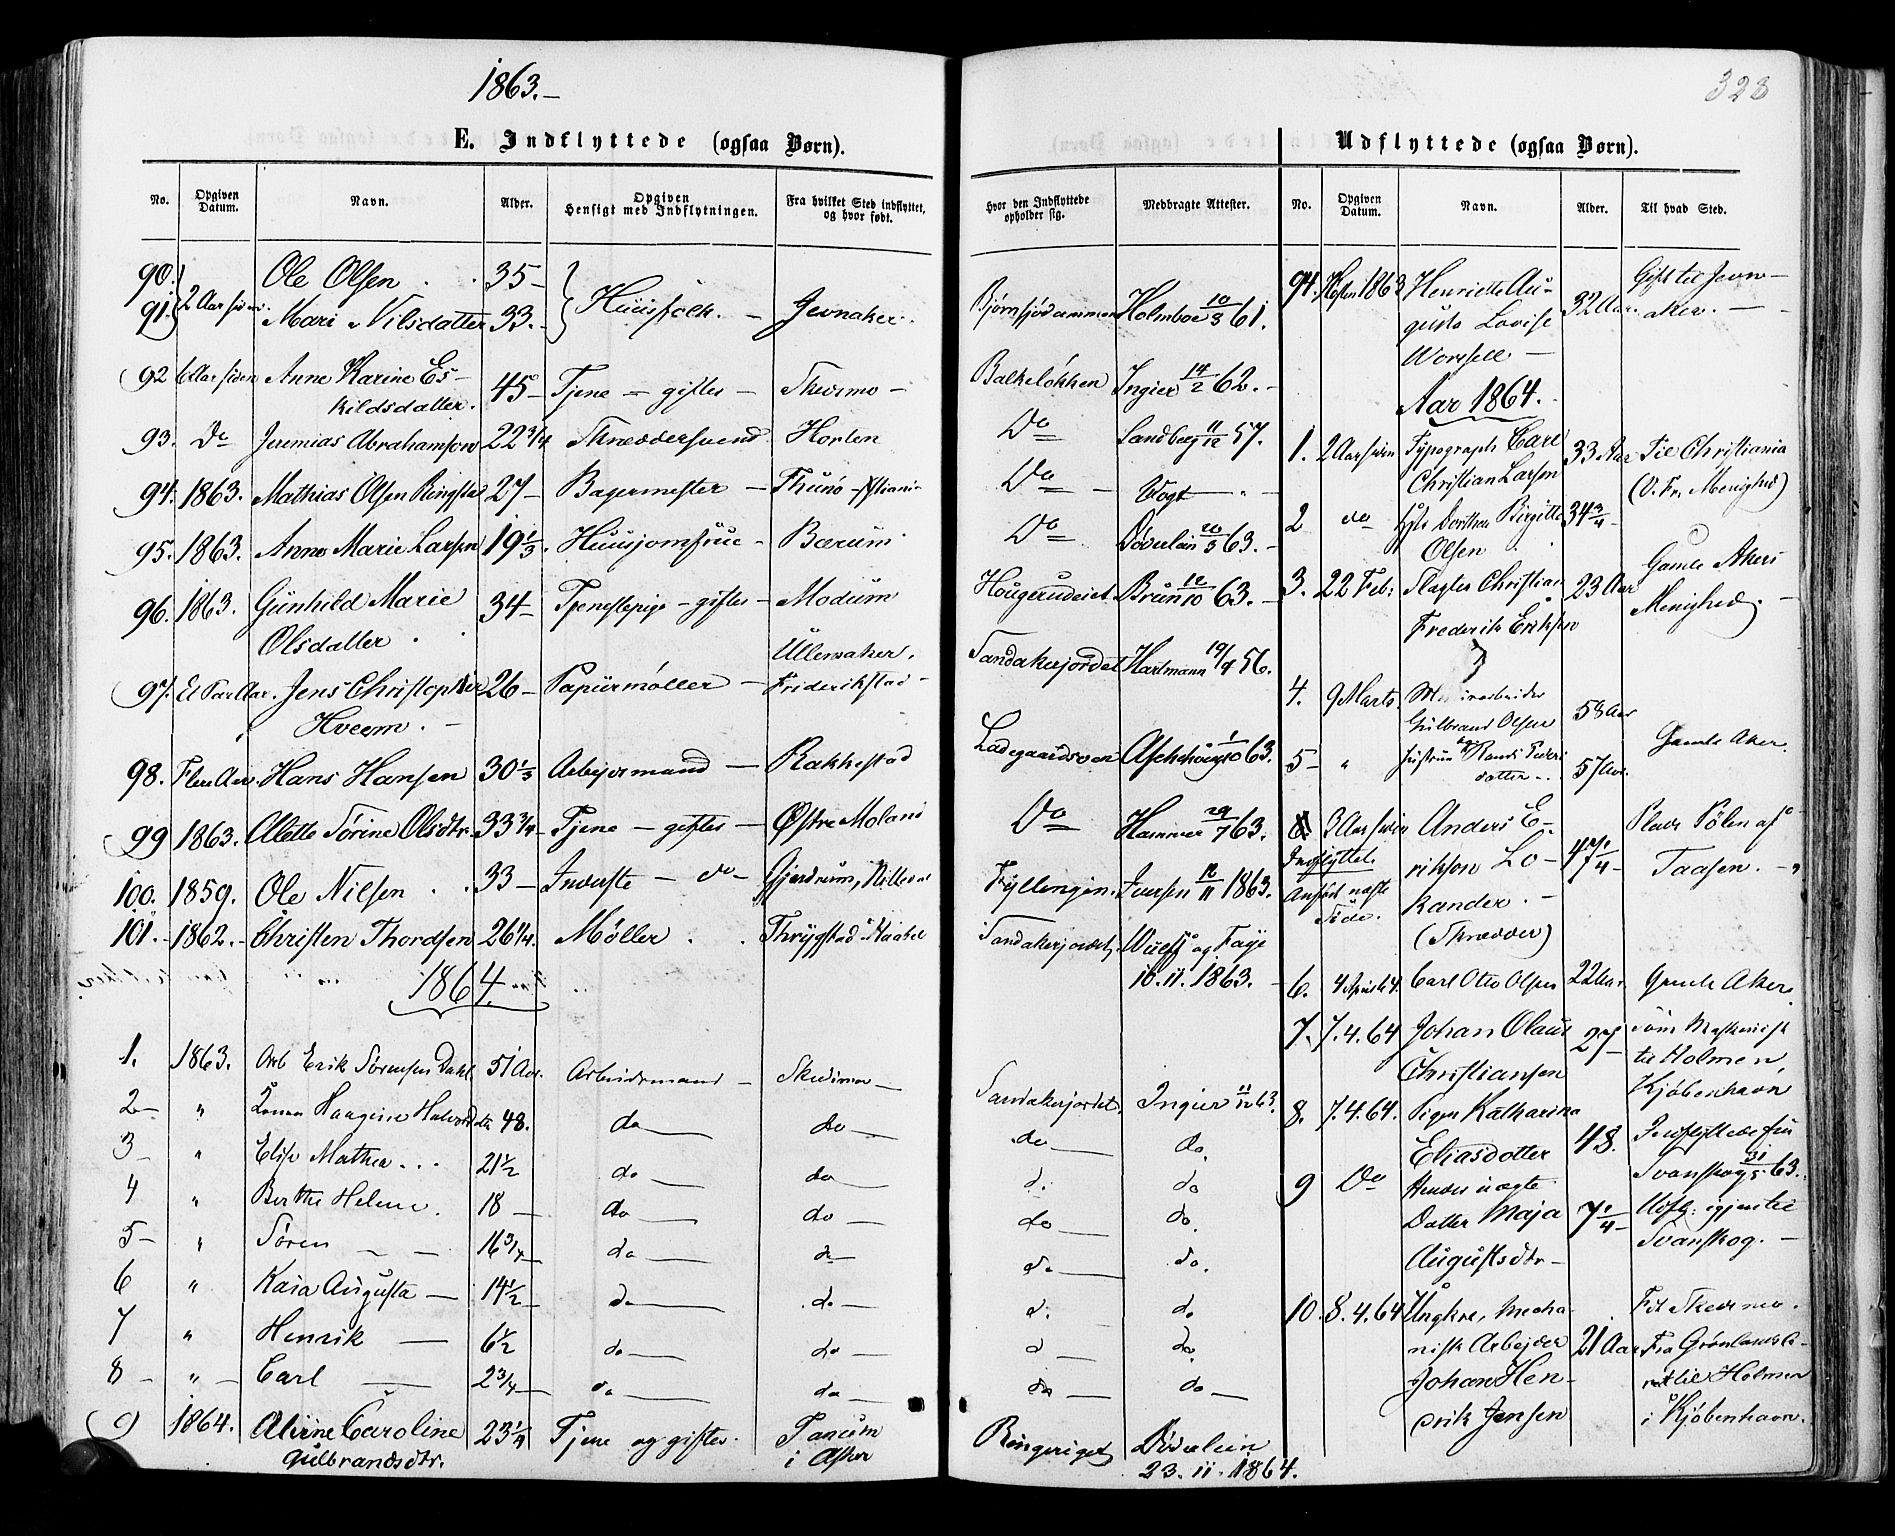 1863.—
E. Indflyttede (ogsaa Børn).
No. Opgiven Datum. Navn. Alder. Opgiven Hensigt med Indflytningen. Fra hvilket Sted indflyttet, og hvor født.
90. Ole Olsen 35—
91. 2 Aar siden. Mari Nilsdatter 33.— Huusfolk. — Jevnaker.
92 6 Aar siden Anne Karine Es-
kildsdatter. 45— Tjene — giftes — Skedsmo —
93. Do Jeremias Abrahamson 22 3/4 Skræddersvend Horten
94. 1863. Mathias Olsen Ringstad 27— Bagermester —
95. 1863. Anne Marie Larsen 19 1/3. Huusjomfrue — Bærum
96. 1863. Gunhild Marie
Olsdatter 34— Tjenestepige — giftes — Modum
Ullensaker.
97. Et Par Aar. Jens Christopher
Hveem. — 26— Papiirmøller — Friderikstad —
98. Flere Aar. Hans Hansen 30 1/3 Arbejdsmand — Rakkestad
99 1863. Alette Sørine Olsdtr. 33 3/4— Tjene — giftes — Østre Moland
100. 1859. Ole Nilsen 33— Inderste — do— Gjerdrum,
101.— 1862.— Christen Thordsen 26 1/4. Møller Thrygstad
1864.
1. 1863. Arb Erik Sørensen Dahl 51 Aar. Arbeidsmand — Skedsmo —
2— " Haagine Halvorsdtr 48. do — do —
3— " Elise Mathea 21 1/2 do — do —
4 " Berthe Helene. 18 — do — do —
5— " Søren — — 16 3/4— do — do —
6 " Kaia Augusta — 14 1/2— do — do —
7 " Henrik — 6 1/2 do — do —
8 — " — Carl — 2 3/4— do — do —
9 1864. Alvine Caroline
Gulbrandsdtr. 23 1/4 Tjene og giftes. Tanum
i Asker
323
Udflyttede (ogsaa Børn).
Hvor den Indflyttede opholder sig. Medbragte Attester. No. Opgiven Datum. Navn. Alder. Til hvad Sted.
Bjørnsjødammen Holmboe 10/3 61.
Balkeløkken Ingier 14/2 62.—
Do Sandberg 11/12 57.
Do — Vogt —
Do Døderlein 20/3 63.—
Hougerudeiet Bruun 12/10 63.—
Sandakerjordet Hartmann 19/9 56.
Ladegaardsøen Aschehoug 1/10 63.
Do Hammer 29/7 63.
Fyllingen. Iversen 12/11 1863.
Sandakerjordet, Wulff og Faye
16.11.1863.—
Sandakerjordet. Ingier 11/12 63.
do — do.
d. do
do — do.
do — do.
d. do
d — do
do — do —
Ringeriget Døderlein
23.11.1864.
94. Høsten 1863 Henriette Au-
gusta Lovise
Worsell — 32 Aar. Gift til Jevn-
aker. —
Aar 1864.
1. 2 Aar siden Typograph Carl
Christian Larsen 33 Aar Til Christiania
(V. Fr. Menighed)
2 do Dorthea Birgitte
Olsen 34 3/4—
3. 22 Feb: Slagter Christian
Frederik Eriksen 23 Aar Gamle Akers
Menighed. —
4. 9 Marts.
Gulbrand Olsen Gamle Aker.
5— " Hustrue Randi Peders
datter 57 Aar.
6. 3 Aar siden Anders E-
Indflyttet.
rikson Lo-
Anført næste
Side.
kander. —
(Skrædder) Taasen. —
6. 4 April 64. Carl Otto Olsen 22 Aar. Gamle Aker.
7. 7.4.64 Johan Olaus
Christiansen 27— som Maskinist
til Holmen,
Kjøbenhavn
8. 7.4.64. Pigen Katharina
Eliasdotter 48. Indflyttede fra
Svanskog 31/5 63.
9 Do Hendes uægte
Datter Maja
Augustsdtr— 7 1/4— Udfl: igjen til
Svanskog. —
10. 8.4.64 Ungkrl, mecha-
nisk Arbejder
Johan Hen-
drik Jensen 21 Aar Fdt Skedsmo.
Fra Grønlandsle-
ret til Holmen
i Kjøbenhavn.